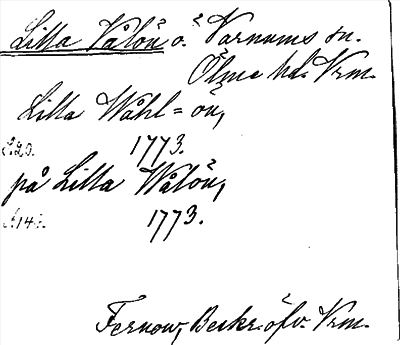 Lilla Vålön ö. Varnums sn.
Ölme hd. Vrm.
Lilla Wåhl=ön,
s. 20. 1773.
på Lilla Wålön,
s. 14. 1773.
Fernow, Beskr. öfv. Vrm.